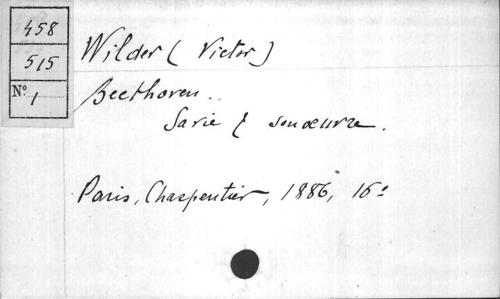 458
515
N° 1
Wilder (Victor)
Beethoven.
Sa vie & son œuvre.
Paris, Charpentier, 1886, 16°